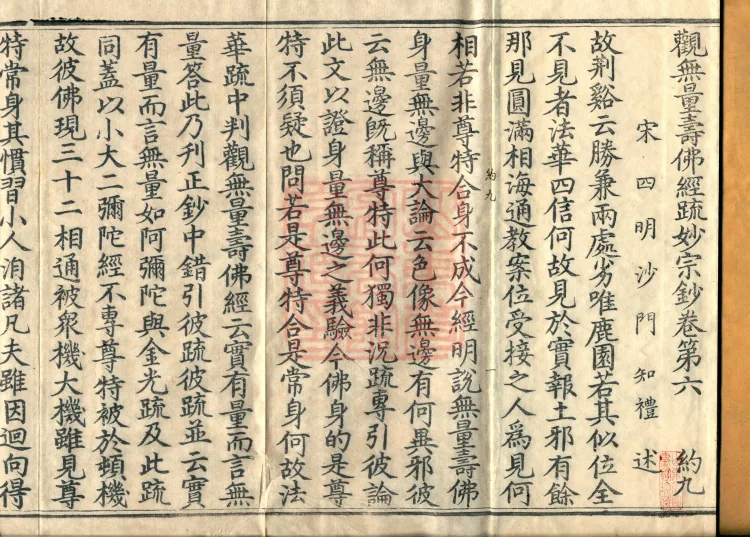 觀無量壽佛經疏妙宗鈔卷第六 約九
宋四明沙門知禮述
故荆谿云勝兼兩處劣唯鹿園若其似位全
不見者法華四信何故見於實報土邪有餘
那見圓滿相海通教案位受接之人爲見何
約九
相若非尊特合身不成今經明說無量壽佛
身量無邊與大論云色像無邊有何異邪彼
云無邊旣稱尊特此何獨非況疏專引彼論
此文以證身量無邊之義驗今佛身的是尊
特不須疑也問若是尊特合是常身何故法
華疏中判觀無量壽佛經云實有量而言無
量答此乃刊正鈔中錯引彼疏彼疏並云實
有量而言無量如阿彌陀與金光疏及此疏
同蓋以小大二彌陀經不專尊特被於頓機
故彼佛現三十二相通被衆機大機雖見尊
特常身其慣習小人洎諸凡夫雖因迴向得